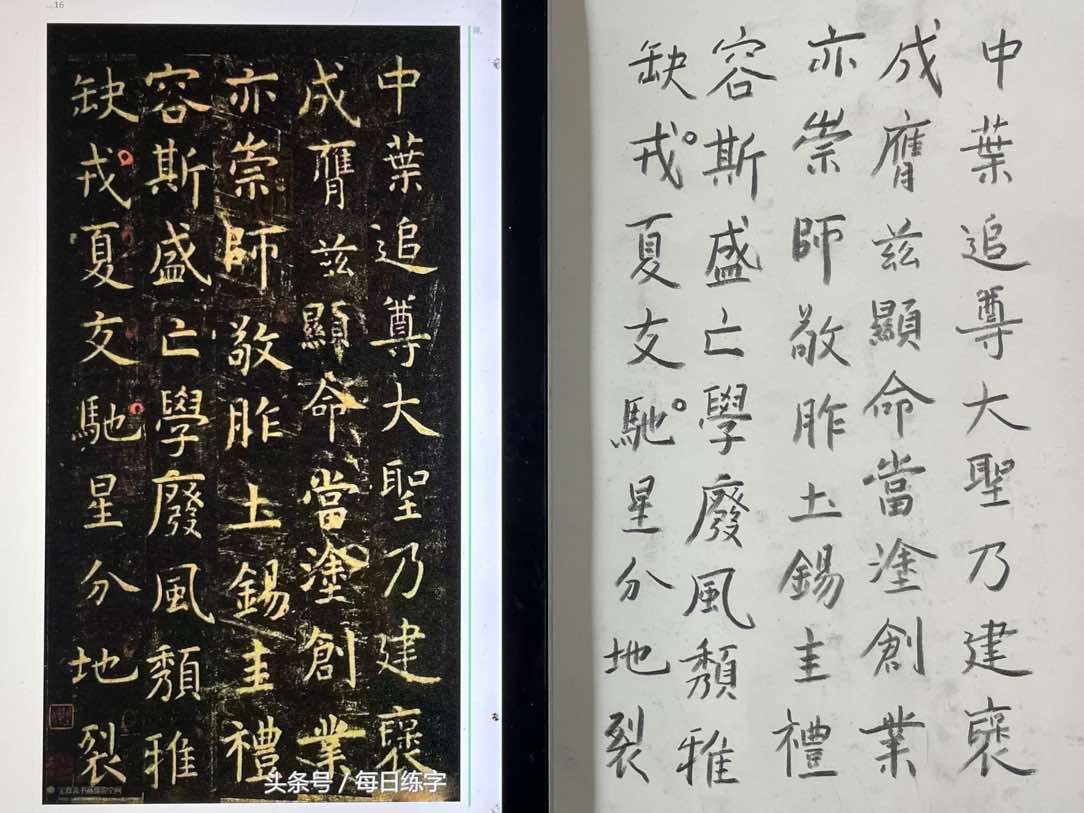 ...16
中葉追尊大聖乃建襃
成膺兹顯命當塗創業
亦崇師敬胙土錫圭禮
容斯盛亡學廢風頽雅
缺戎夏交馳星分地裂
头条号 / 每日练字
中葉追尊大聖乃建襃
成膺兹顯命當塗創業
亦崇師敬胙土錫圭禮
容斯盛亡學廢風頽雅
缺戎夏交馳星分地裂